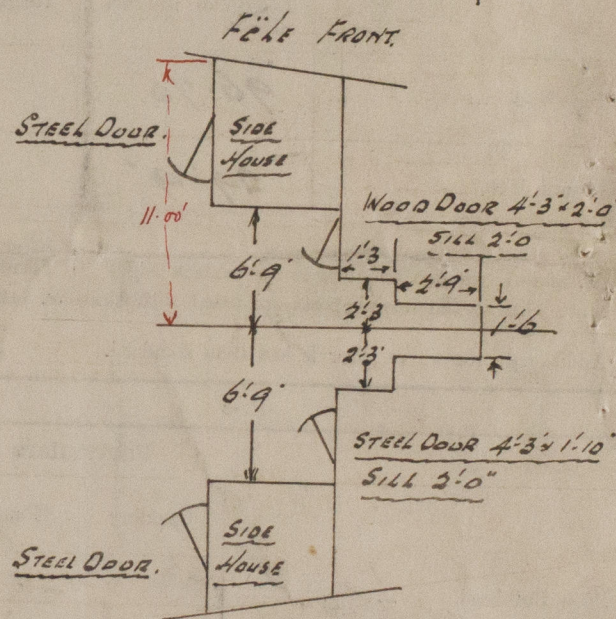 FÖLE FRONT.
STEEL DOOR.
SIDE
HOUSE
WOOD DOOR 4'-3" x 2'-0
SILL 2'-0
11.00'
6'-9"
1'-3
2'-9"
2'-3
1'-6
2'-3"
6'-9"
STEEL DOOR 4'-3" x 1'-10"
SILL 2'-0"
SIDE
HOUSE
STEEL DOOR.